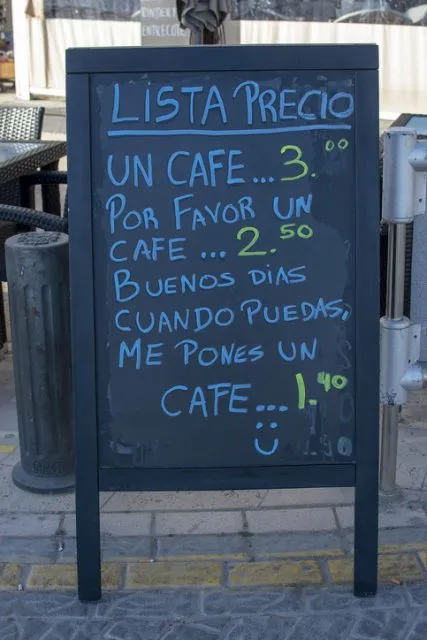 LISTA PRECIO
UN CAFE... 3.00
POR FAVOR UN
CAFE ... 2.50
BUENOS DIAS
CUANDO PUEDAS,
ME PONES UN
CAFE... 1.40